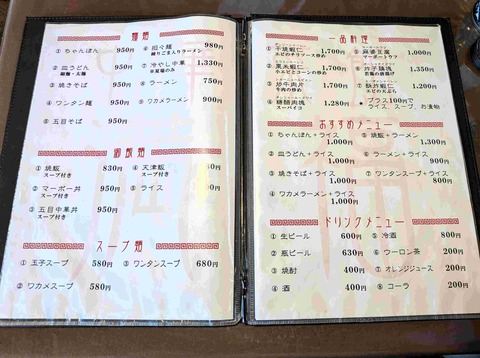 麺類
① ちゃんぽん 950円
② 皿うどん 950円
細麺・太麺
③ 焼きそば 950円
④ ワンタン麺 950円
⑤ 五目そば 950円
⑥ 坦々麺 980円
練りごま入りラーメン
⑦ 冷やし中華 1,330円
※夏場のみ
⑧ ラーメン 750円
⑨ ワカメラーメン 900円
御飯類
① 焼飯 830円
スープ付き
② マーボー丼 950円
スープ付き
③ 五目中華丼 950円
スープ付き
④ 天津飯
スープ付き
⑤ ライス
スープ類
① 玉子スープ 580円
② ワカメスープ 580円
③ ワンタンスープ 680円
一品料理
① 干焼蝦仁 1,700円
エビのチリソース炒め
② 果米蝦仁 1,700円
小エビとコーンの炒め
③ 炒牛肉片 1,700円
牛肉の炒め
④ 糖醋肉塊 1,280円
スーパイコ
⑤ 麻婆豆腐 1,000円
マーボードウフ
⑥ 炸子鶏塊 1,350円
若鶏の唐揚げ
⑦ 酥炸蝦仁 1,200円
エビの天ぷら
★ プラス100円で
ライス、スープ、お漬物
おすすめメニュー
① ちゃんぽん+ライス 1,000円
② 皿うどん+ライス 1,000円
③ 焼きそば+ライス 1,000円
④ ワカメラーメン+ライス 1,000円
⑤ 焼飯+ラーメン 1,300円
⑥ ラーメン+ライス 900円
⑦ ワンタンスープ+ライス 800円
ドリンクメニュー
① 生ビール 600円
② 瓶ビール 630円
③ 焼酎 400円
④ 酒 400円
⑤ 冷酒 800円
⑥ ウーロン茶 200円
⑦ オレンジジュース 200円
⑧ コーラ 200円